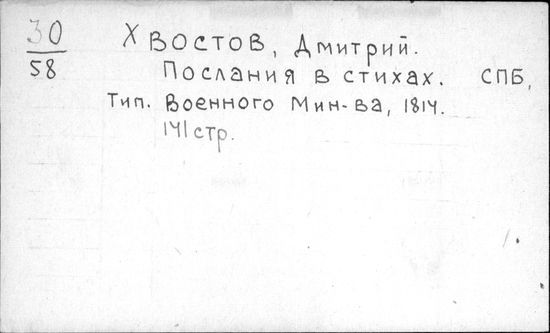 30
58
Хвостов, Дмитрий.
Послания в стихах. СПБ,
Тип. Военного Мин-ва, 1814.
141 стр.